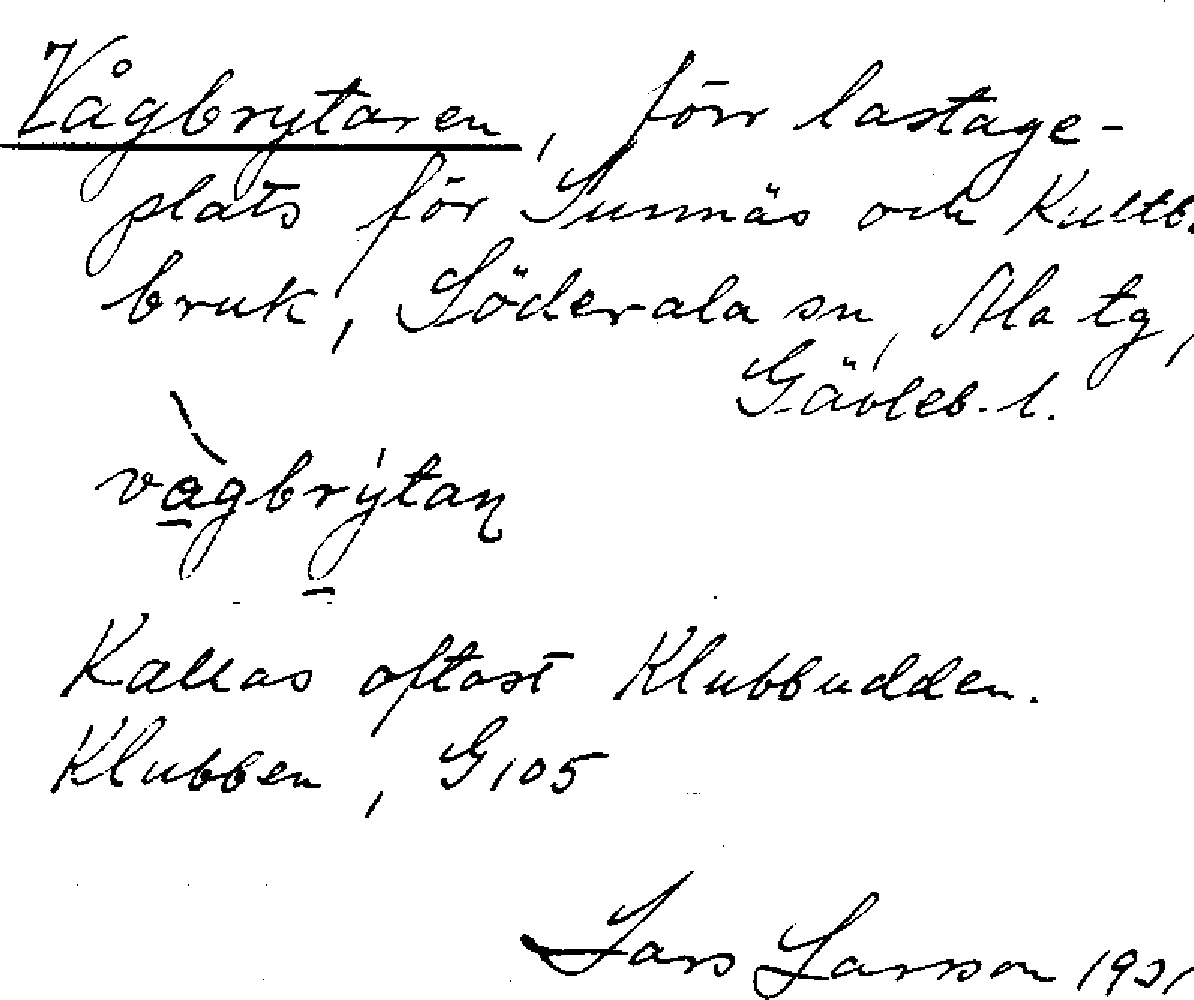 Vågbrytaren, förr lastage-
plats för Sunnäs och Kultb.
bruk, Söderala sn, Ala tg,
Gävleb. l.
vàgbrýtaṇ
Kallas oftast Klubbudden.
Klubben, G105
Lars Larsson